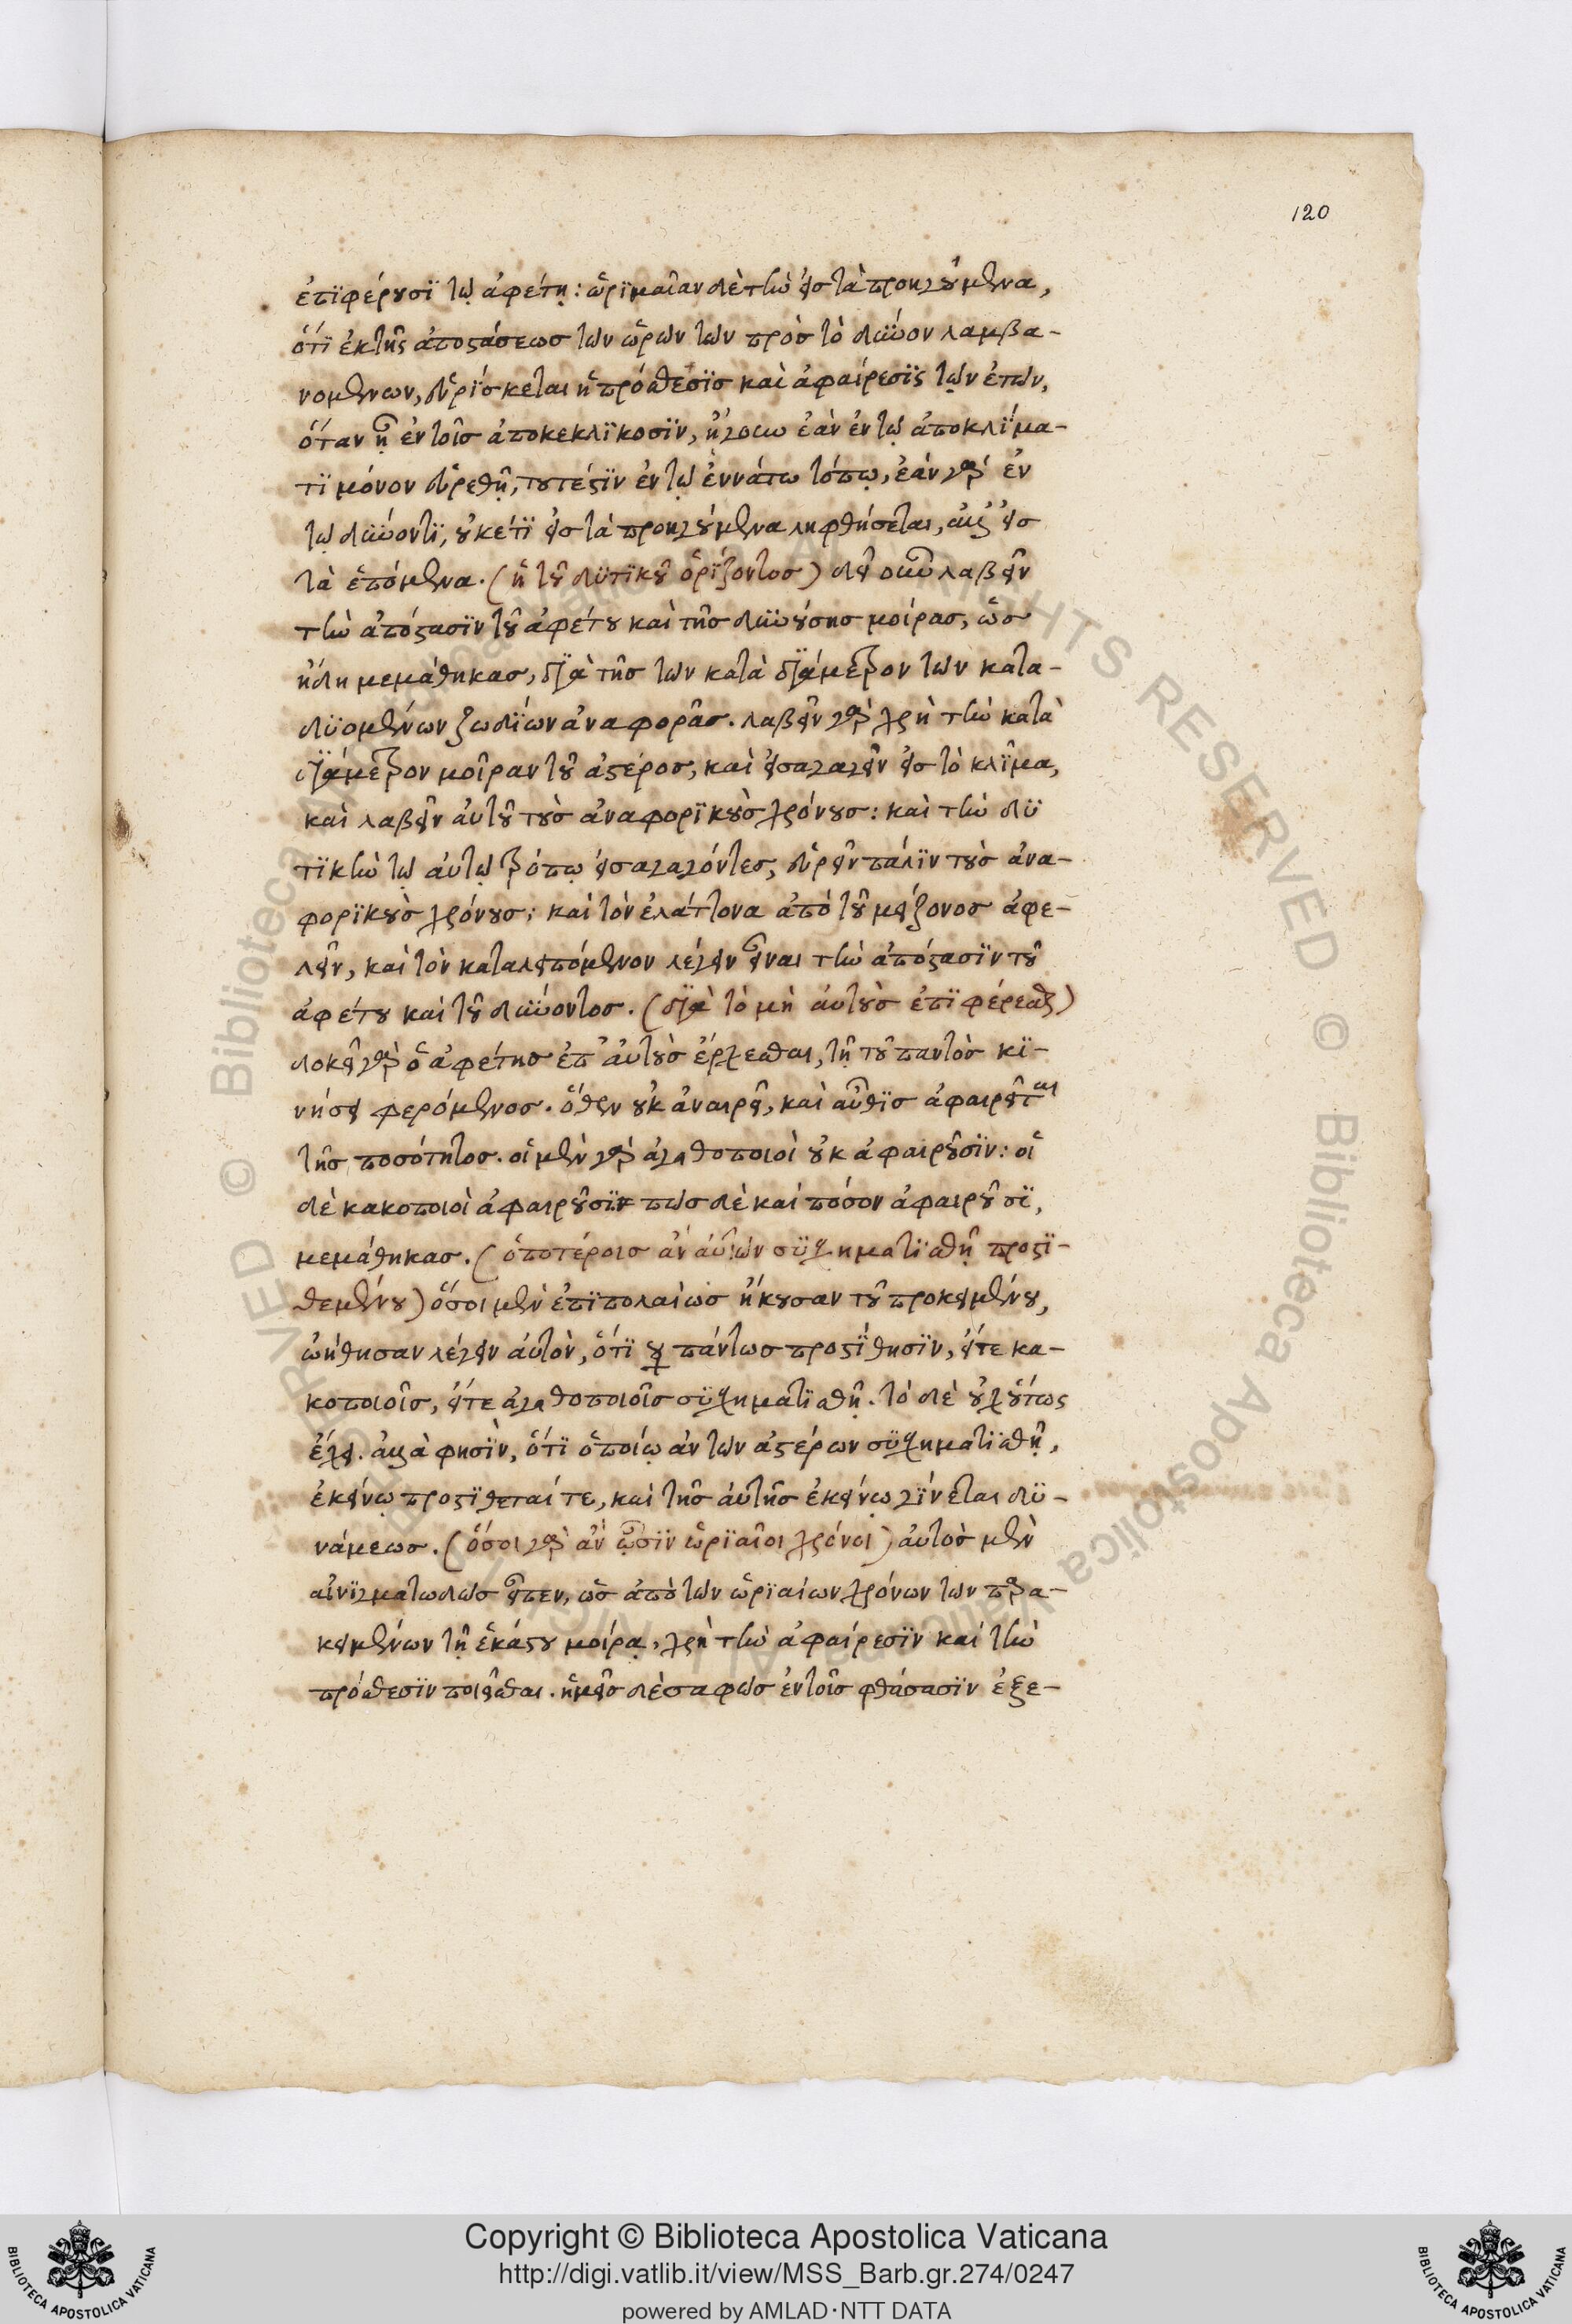 120
ἐπιφέρουσι τῷ ἀφέτῃ: ὡριμαίαν δὲ τὴν εἰς τὰ προηγούμενα,
ὅτι ἐκ τῆς ἀποστάσεως τῶν ὡρῶν τῶν πρὸς τὸ δῦνον λαμβα-
νομένων, εὑρίσκεται ἡ πρόσθεσις καὶ ἀφαίρεσις τῶν ἐτῶν,
ὅταν ᾖ ἐν τοῖς ἀποκεκλικόσιν, ἤγουν ἐὰν ἐν τῷ ἀποκλίμα-
τι μόνον εὑρεθῇ, τουτέστιν ἐν τῷ ἐννάτῳ τόπῳ, ἐὰν γὰρ ἐν
τῷ δύνοντι, οὐκέτι εἰς τὰ προηγούμενα ληφθήσεται, ἀλλ' εἰς
τὰ ἑπόμενα. (ἢ τοῦ δυτικοῦ ὁρίζοντος) δεῖ οὖν λαβεῖν
τὴν ἀπόστασιν τοῦ ἀφέτου καὶ τῆς δυνούσης μοίρας, ὡς
ἤδη μεμάθηκας, διὰ τῆς τῶν κατὰ διάμετρον τῶν κατα-
δυομένων ζωδίων ἀναφορᾶς. λαβεῖν γὰρ χρὴ τὴν κατὰ
διάμετρον μοῖραν τοῦ ἀστέρος, καὶ εἰσαγαγεῖν εἰς τὸ κλῖμα,
καὶ λαβεῖν αὐτοῦ τοὺς ἀναφορικοὺς χρόνους: καὶ τὴν δυ
τικὴν τῷ αὐτῷ τρόπῳ εἰσαγαγόντες, εὑρεῖν πάλιν τοὺς ἀνα-
φορικοὺς χρόνους: καὶ τὸν ἐλάττονα ἀπὸ τοῦ μείζονος ἀφε-
λεῖν, καὶ τὸν καταλειπόμενον λέγειν εἶναι τὴν ἀπόστασιν τοῦ
ἀφέτου καὶ τοῦ δύνοντος. (διὰ τὸ μὴ αὐτοὺς ἐπιφέρεσθαι)
δοκεῖ γὰρ ὁ ἀφέτης ἐπ' αὐτοὺς ἔρχεσθαι, τῇ τοῦ παντὸς κι-
νήσει φερόμενος. ὅθεν οὐκ ἀναιρεῖ, καὶ αὖθις ἀφαιρεῖται
τῆς ποσότητος. οἱ μὲν γὰρ ἀγαθοποιοὶ οὐκ ἀφαιροῦσιν: οἱ
δὲ κακοποιοὶ ἀφαιροῦσιν πῶς δὲ καὶ πόσον ἀφαιροῦσι,
μεμάθηκας. (ὁποτέροις ἂν αὐτῶν συσχηματισθῇ προστι-
θεμένου) ὅσοι μὲν ἐπιπολαίως ἤκουσαν τοῦ προκειμένου,
ᾠήθησαν λέγειν αὐτὸν, ὅτι ☿ πάντως προστίθησιν, εἴτε κα-
κοποιοῖς, εἴτε ἀγαθοποιοῖς συσχηματισθῇ. τὸ δὲ οὐχ οὕτως
ἔχει. ἀλλὰ φησὶν, ὅτι ὁποίῳ ἂν τῶν ἀστέρων συσχηματισθῇ,
ἐκείνῳ προστίθεταί τε, καὶ τῆς αὐτῆς ἐκείνῳ γίνεται δυ-
νάμεως. (ὅσοι γὰρ ἂν ὦσιν ὡριαῖοι χρόνοι) αὐτὸς μὲν
αἰνιγματωδῶς εἶπεν, ὡς ἀπὸ τῶν ὡριαίων χρόνων τῶν παρα-
κειμένων τῇ ἑκάστου μοίρᾳ, χρὴ τὴν ἀφαίρεσιν καὶ τὴν
πρόσθεσιν ποιεῖσθαι. ἡμεῖς δὲ σαφῶς ἐν τοῖς φθάσασιν ἐξε-
Copyright © Biblioteca Apostolica Vaticana
http://digi.vatlib.it/view/MSS_Barb.gr.274/0247
powered by AMLAD·NTT DATA